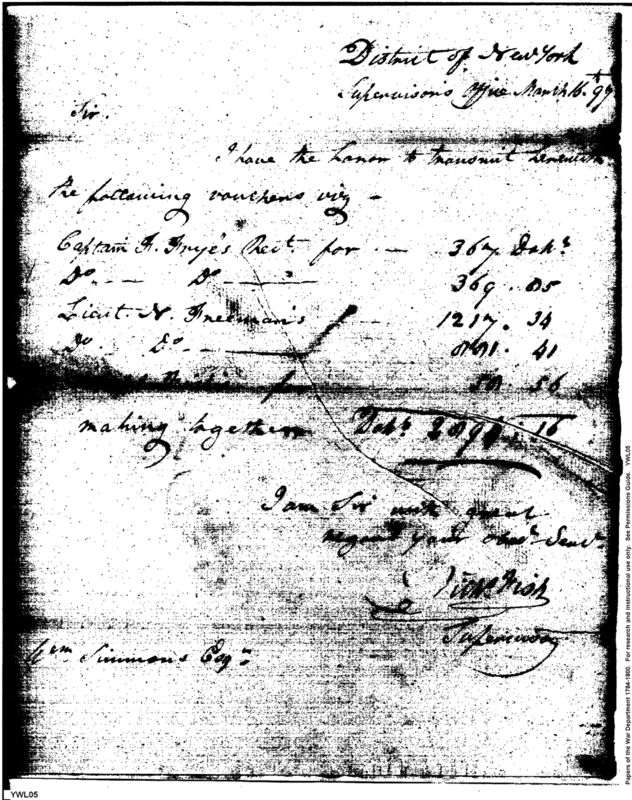 District of New York
Supervisor's Office March 16th 97
Sir.
I have the honor to transmit herewith
the following vouchers viz
Captain F. Frye's Rect. for — 367 Dolls
Do. — Do. — 369.85
Lieut. N. Freeman's 1217.34
Do. Do. — 881.41
for 58.56
making together Dolls 2894.16
I am Sir with great
regard your Obedt Servt
Nichs Fish
Supervisor
Wm Simmons Esqr
YWL05
Papers of the War Department 1784-1800. For research and instructional use only. See Permissions Guide. YWL05